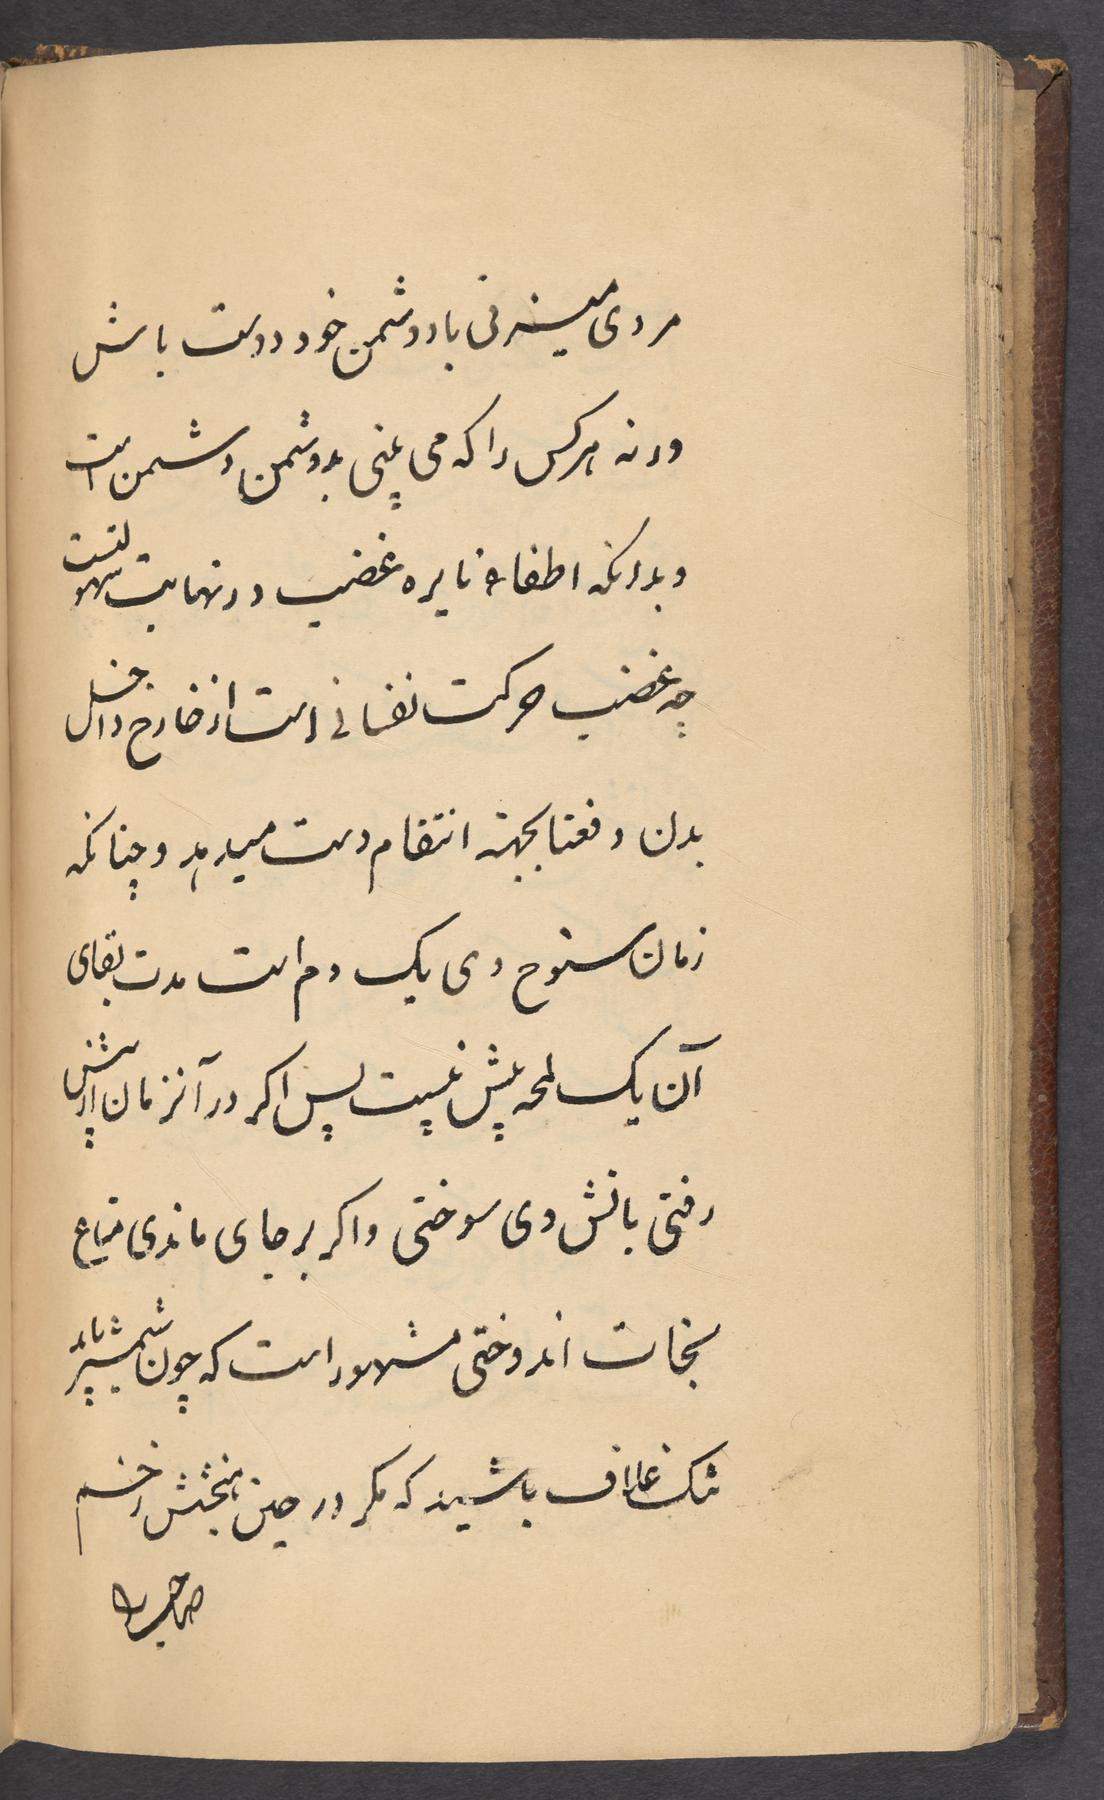 مردی میزنی با دشمن خود دوست باش
ورنه هرکس را که می بینی بدشمن دشمن است
و بدانکه اطفاء نایره غضب در نهایت سهولتست
چه غضب حرکت نفسانی است از خارج داخل
بدن دفعتا بجهته انتقام دست میدهد و چنانکه
زمان سنوح وی یک دم است مدت بقای
آن یک لمحه بیش نیست پس اگر در آنزمان از پیش
رفتی باتش وی سوختی و اگر بر جای ماندی متاع
نجات اندوختی مشهور است که چون شمشیر باید
تنک غلاف باشید که مگر در حین جنبش زخم
صاحب را